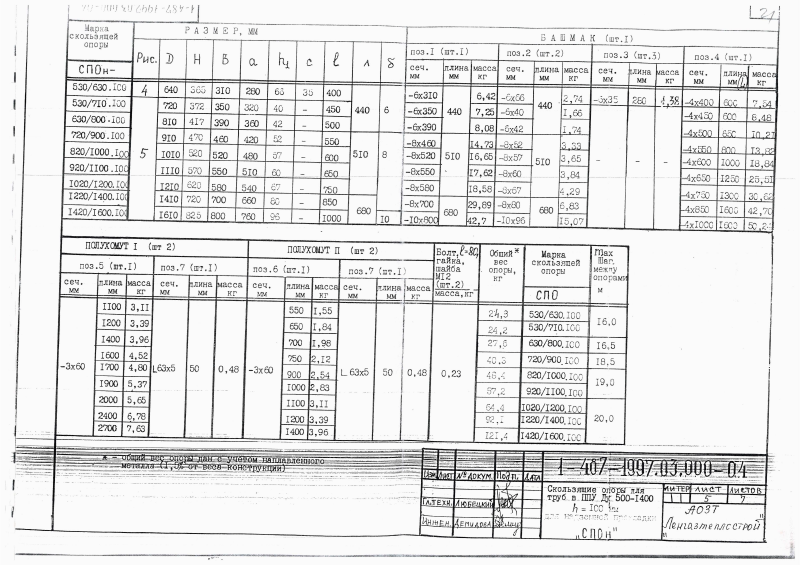 21
Марка скользящей опоры | Рис. | РАЗМЕР, ММ | БАШМАК (шт.I)
D | H | B | a | h₁ | c | l | л | б | поз.I (шт.I) | поз.2 (шт.2) | поз.3 (шт.3) | поз.4 (шт.I)
СПОн- | сеч. мм | длина мм | масса кг | сеч. мм | длина мм | масса кг | сеч. мм | длина мм | масса кг | сеч. мм | длина мм | масса кг
530/630.I00 | 4 | 640 | 365 | 3I0 | 280 | 63 | 35 | 400 | 440 | 6 | -6x3I0 | 440 | 6,42 | -6x66 | 440 | 2,74 | -6x35 | 280 | 1,38 | -4x400 | 600 | 7,54
530/7I0.I00 | 5 | 720 | 372 | 350 | 320 | 40 | - | 450 | -6x350 | 7,25 | -6x40 | I,66 | - | - | - | -4x450 | 600 | 8,48
630/800.I00 | 8I0 | 4I7 | 390 | 360 | 42 | - | 500 | -6x390 | 8,08 | -6x42 | I,74 | -4x500 | 650 | I0,2I
720/900.I00 | 9I0 | 470 | 460 | 420 | 52 | - | 550 | 5I0 | 8 | -8x460 | 5I0 | I4,73 | -8x52 | 5I0 | 3,33 | -4x550 | 800 | I3,82
820/I000.I00 | I0I0 | 520 | 520 | 480 | 57 | - | 600 | -8x520 | I6,65 | -8x57 | 3,65 | -4x600 | I000 | I8,84
920/II00.I00 | III0 | 570 | 550 | 5I0 | 60 | - | 650 | -8x550 | I7,62 | -8x60 | 3,84 | -4x650 | I250 | 25,5I
I020/I200.I00 | I2I0 | 620 | 580 | 540 | 67 | - | 750 | -8x580 | I8,58 | -8x67 | 4,29 | -4x750 | I300 | 30,62
I220/I400.I00 | I4I0 | 720 | 700 | 660 | 80 | - | 850 | 680 | -8x700 | 680 | 29,89 | -8x80 | 680 | 6,83 | -4x850 | I600 | 42,70
I420/I600.I00 | I6I0 | 825 | 800 | 760 | 96 | - | I000 | I0 | -I0x800 | 42,7 | -I0x96 | I5,07 | -4xI000 | I600
ПОЛУХОМУТ I (шт 2) | ПОЛУХОМУТ П (шт 2) | Болт, l-80, гайка, шайба МI2 (шт.2) | Общий* вес опоры, кг | Марка скользящей опоры | Max Шаг, между опорами м
поз.5 (шт.I) | поз.7 (шт.I) | поз.6 (шт.I) | поз.7 (шт.I)
сеч. мм | длина мм | масса кг | сеч. мм | длина мм | масса кг | сеч. мм | длина мм | масса кг | сеч. мм | длина мм | масса кг | масса,кг | СПО
-3x60 | II00 | 3,II | ∟63x5 | 50 | 0,48 | -3x60 | 550 | I,55 | ∟63x5 | 50 | 0,48 | 0,23 | 24,3 | 530/630.I00 | I6,0
I200 | 3,39 | 650 | I,84 | 24,2 | 530/7I0.I00
I400 | 3,96 | 700 | I,98 | 27,6 | 630/800.I00 | I6,5
I600 | 4,52 | 750 | 2,I2 | 40,3 | 720/900.I00 | I8,5
I700 | 4,80 | 900 | 2,54 | 46,4 | 820/I000.I00 | I9,0
I900 | 5,37 | I000 | 2,83 | 57,2 | 920/II00.I00
2000 | 5,65 | II00 | 3,II | 64,4 | I020/I200.I00 | 20,0
2400 | 6,78 | I200 | 3,39 | 92,I | I220/I400.I00
2700 | 7,63 | I400 | 3,96 | I2I,4 | I420/I600.I00
* - общий вес опоры дан с учетом наплавленного
металла (I,5% от веса конструкции)
1-487-1997.03.000-04
Изм Лист № докум. Подп. Дата
Скользящие опоры для
труб в ППУ Ду 500-I400
h = I00 мм
"СПОн"
Литер Лист Листов
5 7
Гл.техн. Любецкий
Инжен.
АОЗТ
"Ленгазтеплострой"